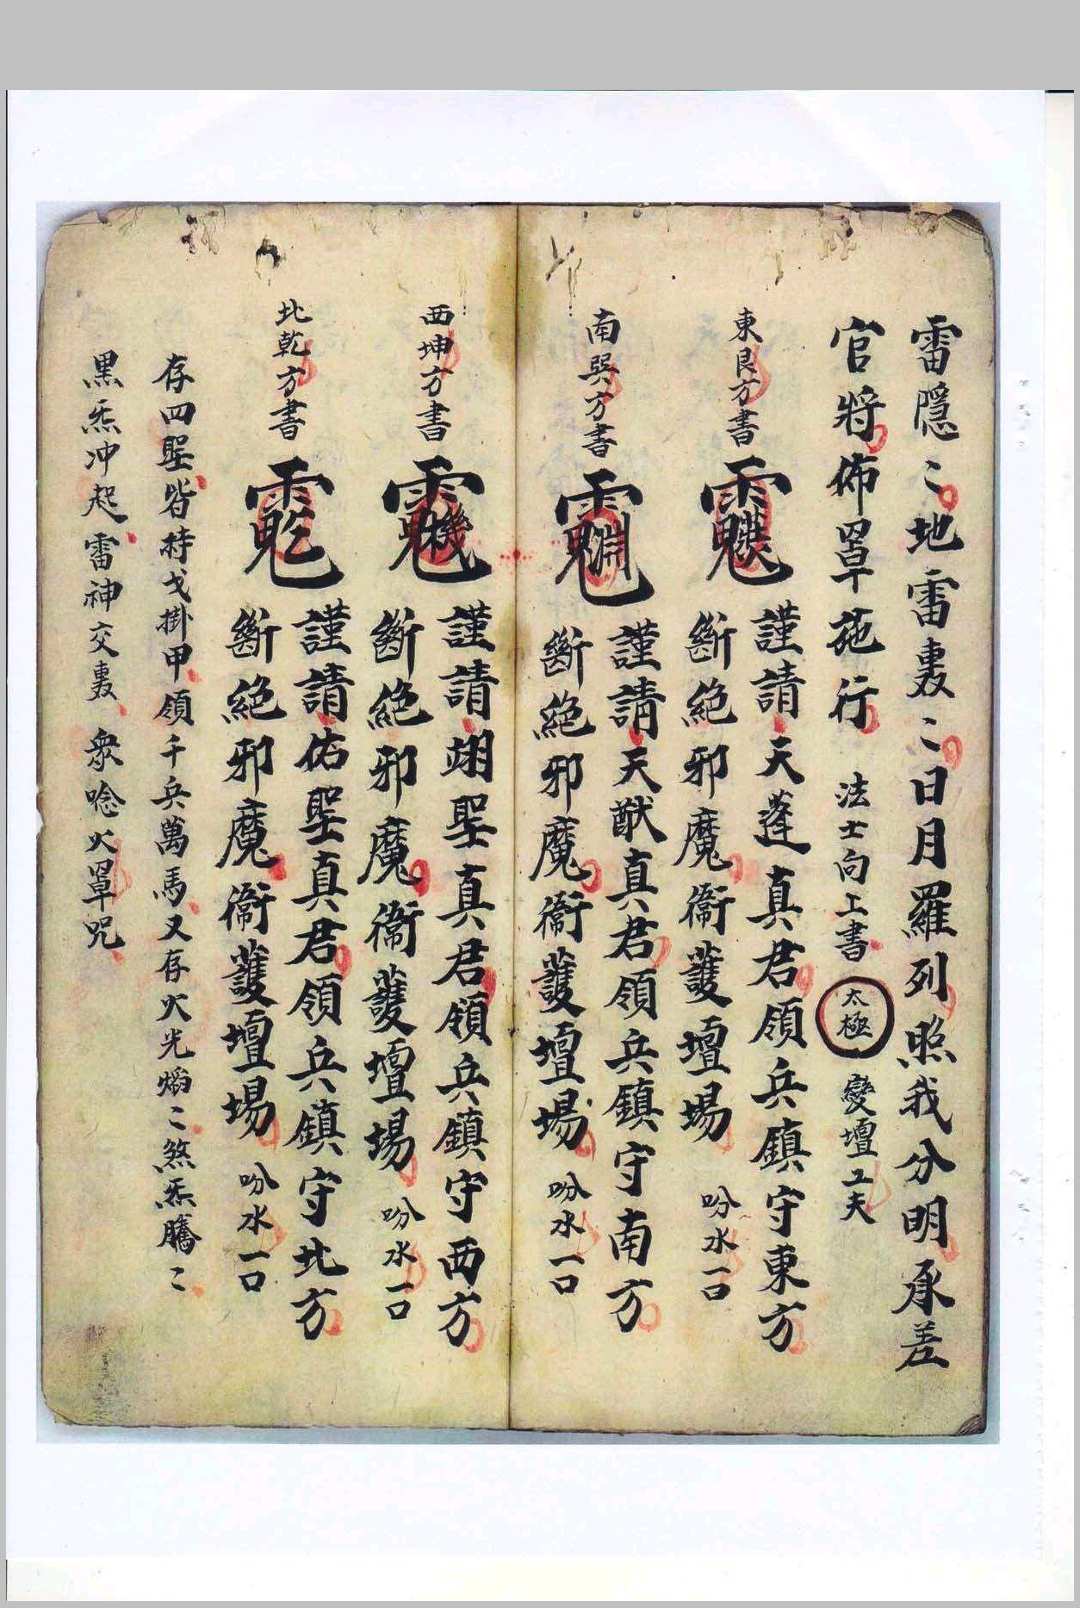 雷隱〻地雷轟〻日月羅列照我分明承差
官將佈罩施行 法士向上書 太極 變壇工夫
東艮方書
謹請天蓬真君領兵鎮守東方
斷絕邪魔衛護壇場 吩水一口
南巽方書
謹請天猷真君領兵鎮守南方
斷絕邪魔衛護壇場 吩水一口
西坤方書
謹請翊聖真君領兵鎮守西方
斷絕邪魔衛護壇場 吩水一口
北乾方書
謹請佑聖真君領兵鎮守北方
斷絕邪魔衛護壇場 吩水一口
存四聖皆持戈掛甲領千兵萬馬又存火光焰〻煞炁騰〻
黑炁冲起雷神交轟眾唸火罩咒